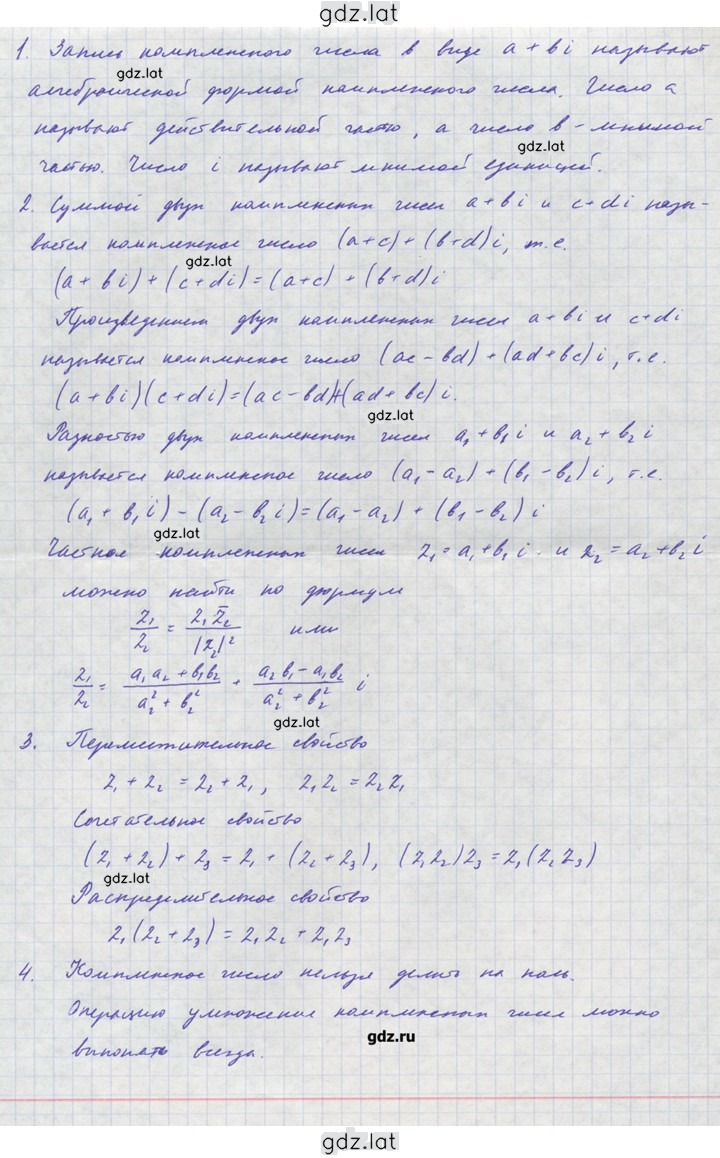 gdz.lat
1. Запись комплексного числа в виде a + b i называют
gdz.lat
алгебраической формой комплексного числа. Число a
называют действительной частью, а число b - мнимой
gdz.lat
частью. Число i называют мнимой единицей.
2. Суммой двух комплексных чисел a + b i и c + d i назы-
вается комплексное число (a+c) + (b+d) i, т.е.
gdz.lat
(a + b i) + (c + d i) = (a+c) + (b+d) i
Произведением двух комплексных чисел a + b i и c + d i
называется комплексное число (ac - bd) + (ad + bc) i, т.е.
(a + b i)(c + d i) = (ac - bd) + (ad + bc) i.
gdz.lat
Разностью двух комплексных чисел a₁ + b₁ i и a₂ + b₂ i
называется комплексное число (a₁ - a₂) + (b₁ - b₂) i, т.е.
(a₁ + b₁ i) - (a₂ - b₂ i) = (a₁ - a₂) + (b₁ - b₂) i
gdz.lat
Частное комплексных чисел z₁ = a₁ + b₁ i и z₂ = a₂ + b₂ i
можно найти по формул
z₁/z₂ = z₁z̄₂/|z₂|² или
z₁/z₂ = (a₁a₂ + b₁b₂)/(a₂² + b₂²) + (a₂b₁ - a₁b₂)/(a₂² + b₂²) i
gdz.lat
3. Переместительное свойство
z₁ + z₂ = z₂ + z₁, z₁z₂ = z₂z₁
Сочетательное свойство
(z₁ + z₂) + z₃ = z₁ + (z₂ + z₃), (z₁z₂)z₃ = z₁(z₂z₃)
gdz.lat
Распределительное свойство
z₁(z₂ + z₃) = z₁z₂ + z₁z₃
4. Комплексное число нельзя делить на ноль.
Операцию умножение комплексных чисел можно
gdz.ru
выполнять всегда.
gdz.lat